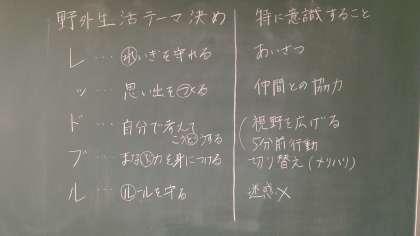 野外生活テーマ決め
レ … ㊌いきを守れる
ッ … 思い出をつくる
ド … 自分で考えて
こうどうする
ブ … まなぶ力を身につける
ル … ルールを守る
特に意識すること
あいさつ
仲間との協力
視野を広げる
5分前行動
切り替え(メリハリ)
迷惑×